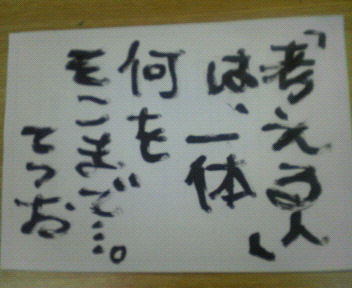 「考える人」
は、一体
何を
そこまで…。
てつお